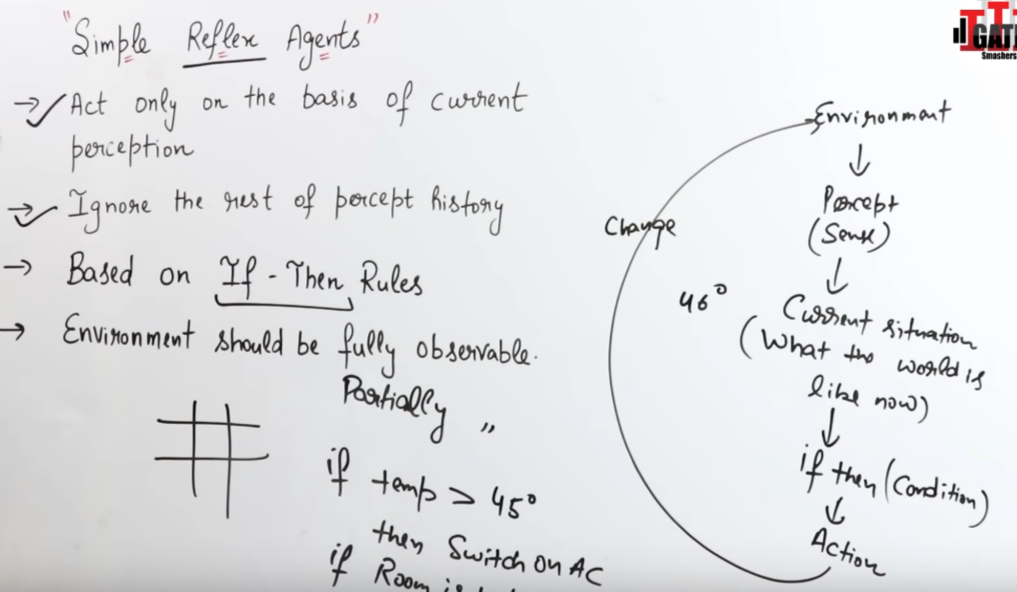 "Simple Reflex Agents"
→ Act only on the basis of current
perception
→ Ignore the rest of percept history
→ Based on If-Then Rules
→ Environment should be fully observable.
Partially "
if temp > 45°
then Switch on AC
if Room is
Environment
↓
Percept
(Sense)
↓
Current situation
(What the world is
like now)
↓
if then (Condition)
↓
Action
Change
46°
GAT
Smashers